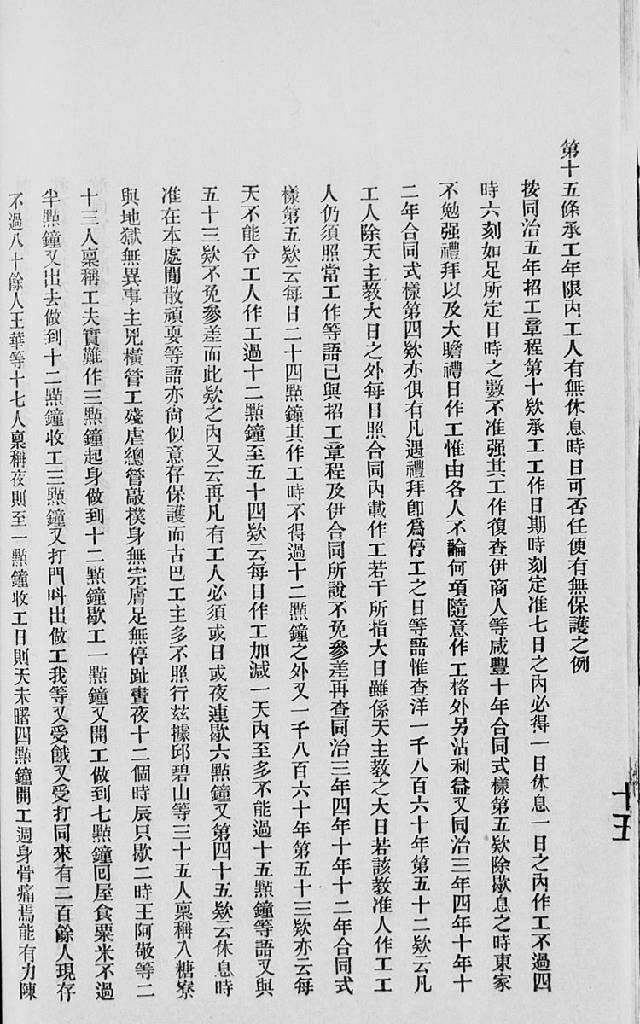 第十五條承工年限內工人有無休息時日可否任便有無保護之例
按同治五年招工章程第十欵承工工作日期時刻定准七日之內必得一日休息一日之內作工不過四
時六刻如足所定日時之數不准强其工作復查伊商人等咸豐十年合同式樣第五欵除歇息之時東家
不勉强禮拜以及大瞻禮日作工惟由各人不論何項隨意作工格外另沾利益又同治三年四年十年十
二年合同式樣第四欵亦俱有凡遇禮拜卽爲停工之日等語惟查洋一千八百六十年第五十二欵云凡
工人除天主教大日之外每日照合同內載作工若干所指大日雖係天主教之大日若該教准人作工工
人仍須照當工作等語已與招工章程及伊合同所說不免參差再查同治三年四年十年十二年合同式
樣第五欵云每日二十四點鐘其作工時不得過十二點鐘之外又一千八百六十年第五十三欵亦云每
天不能令工人作工過十二點鐘至五十四欵云每日作工加減一天內至多不能過十五點鐘等語又與
五十三欵不免參差而此欵之內又云再凡有工人必須或日或夜連歇六點鐘又第四十五欵云休息時
准在本處閒散頑耍等語亦尙似意存保護而古巴工主多不照行玆據邱碧山等三十五人稟稱入糖寮
與地獄無異事主兇橫管工殘虐總管敲撲身無完膚足無停趾晝夜十二個時辰只歇二時王阿敬等二
十三人稟稱工夫實難作三點鐘起身做到十二點鐘歇工一點鐘又開工做到七點鐘回屋食粟米不過
半點鐘又出去做到十二點鐘收工三點鐘又打門呌出做工我等又受餓又受打同來有二百餘人現存
不過八十餘人王華等十七人稟稱夜則至一點鐘收工日則天未曙四點鐘開工週身骨痛焉能有力陳
十五